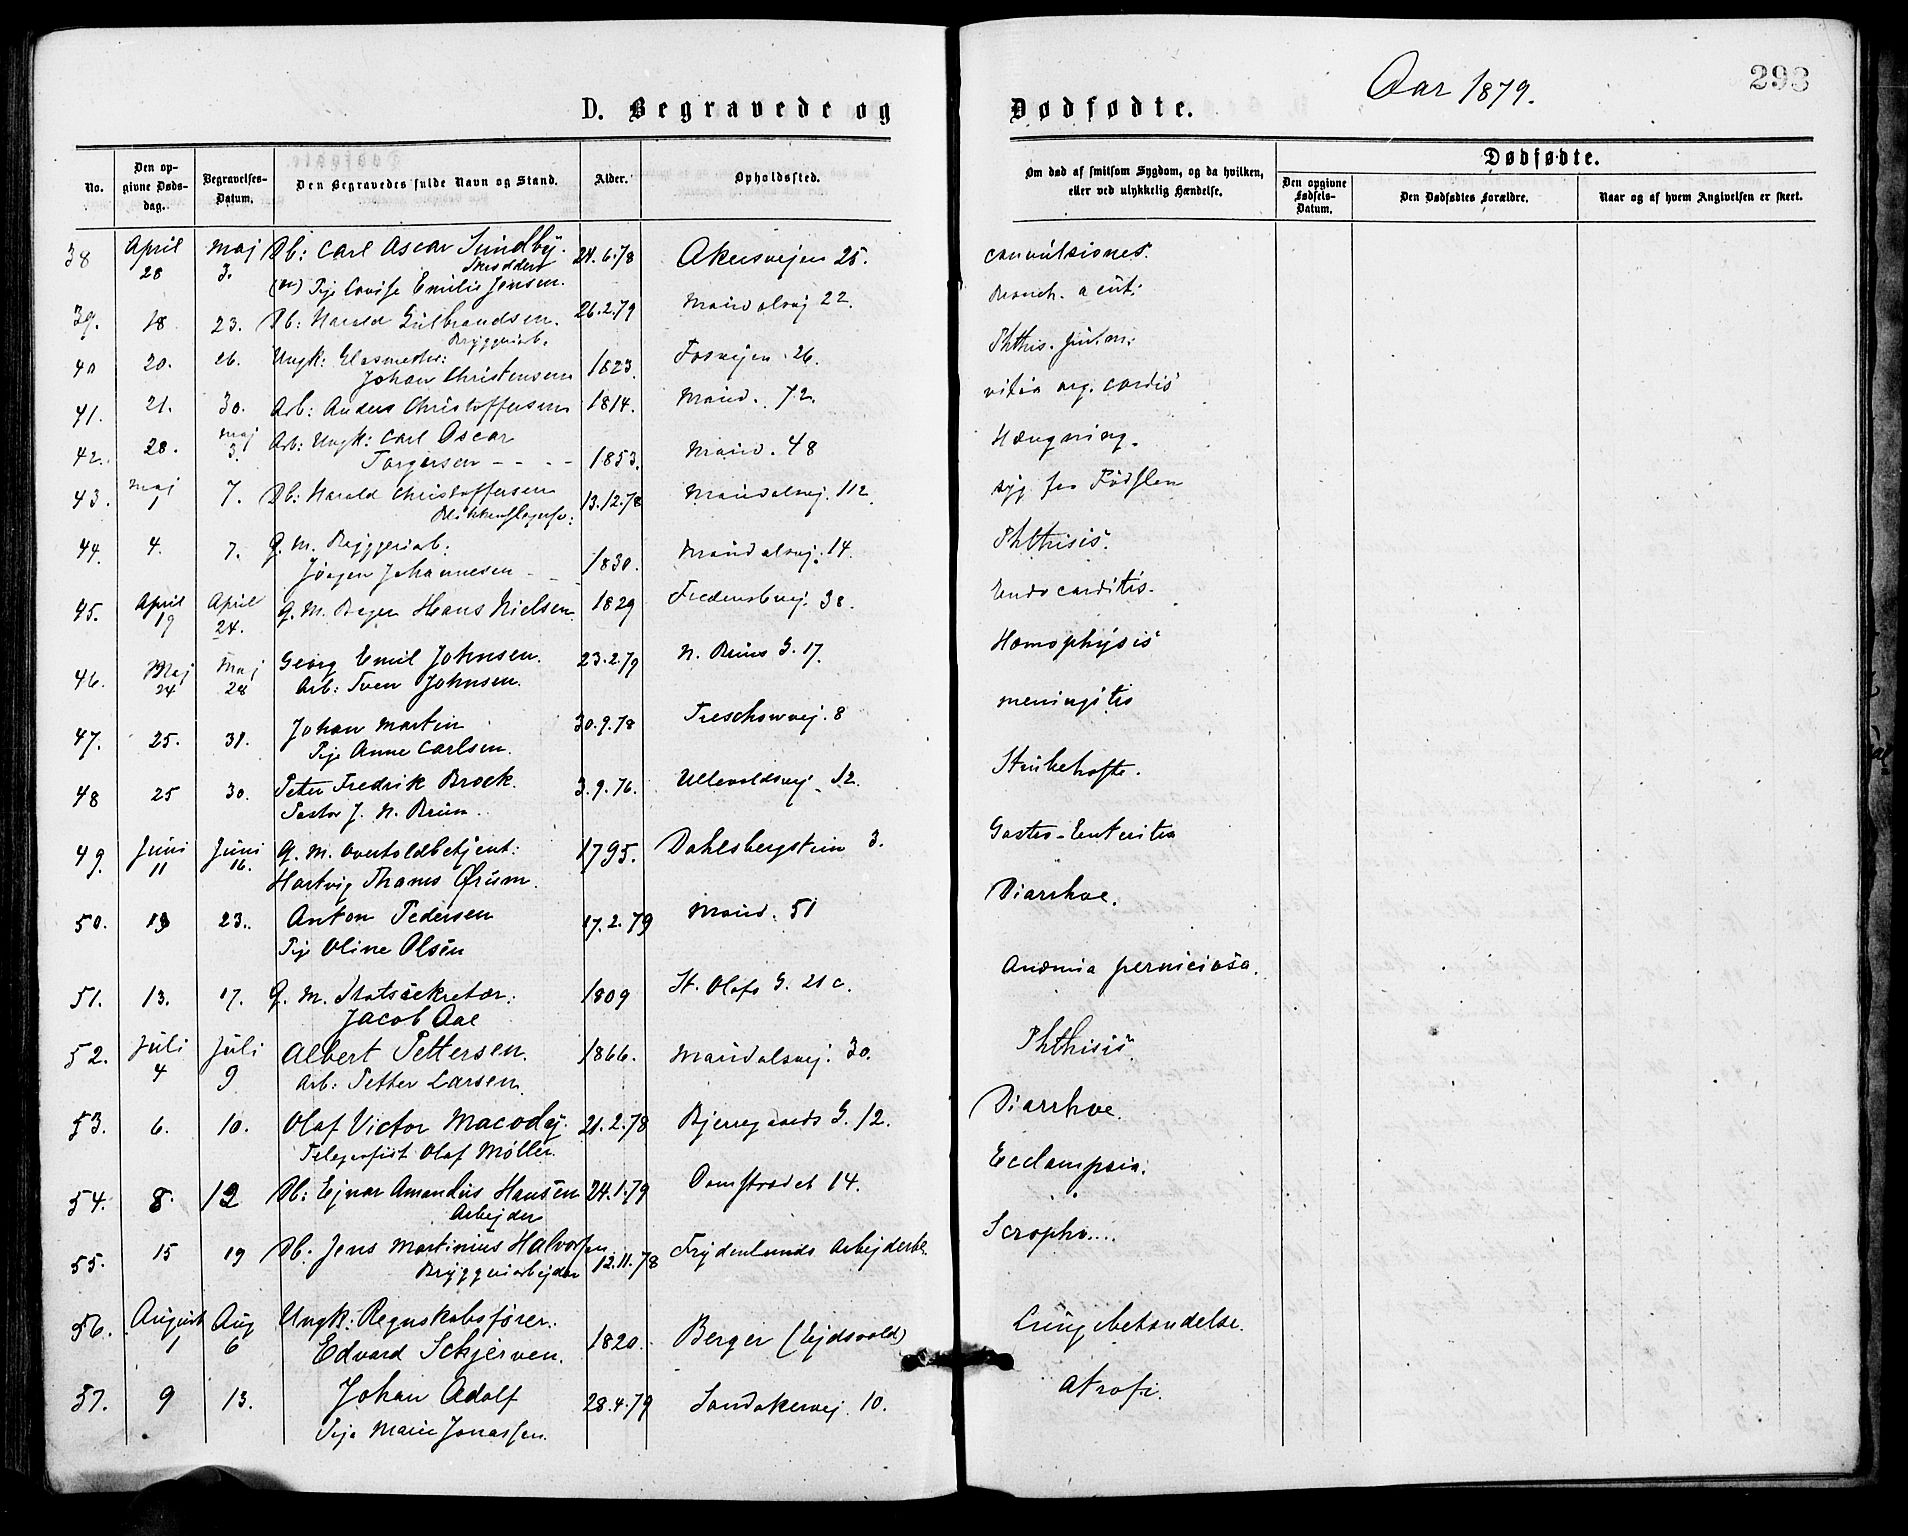 Aar 1879.
293
D. Begravede og Dødfødte.
No.
Den opgivne Dødsdag.
Begravelses-Datum.
Den Begravedes fulde Navn og Stand.
Alder.
Opholdssted.
Om død af smitsom Sygdom, og da hvilken, eller ved ulykkelig Hændelse.
Dødfødte.
Den opgivne Fødsels-Datum.
Den Dødfødtes Forældre.
Naar og af hvem Angivelsen er skeet.
38 April 28 Maj 3. Db: Carl Oscar Sundby. 24.6.78 Akersvejen 25. convulsiones.
Skrædder
Pige Lovise Emilie Jensen.
39. 18 23. Db: Harald Gulbrandsen. 26.2.79 Maridalsvej 22. Bronch. acut:
Bryggeriarb.
40 20. 26. Ungk: Glasmester: 1823. Fosvejen 26. Phthis. pulm:
Johan Christensen
41. 21. 30. Arb: Anders Christoffersen 1814. Marid. 72. vitia org. cordis
42. 28. Maj 3. Arb: Ungk: Carl Oscar 1853. Marid. 48 Hængning.
Torgersen - - - -
43. Maj 1 7. Db: Harald Christoffersen 13.12.78 Maridalsvej. 112 syg fra Fødslen
44. 4. 7. G. M. Bryggeriarb: 1830. Maridalsvej. 14. Phthisis.
Jørgen Johannesen - -
45. April 19 April 24. G. M. Bager Hans Nielsen 1829 Fredensbvej. 38. Endocarditis.
46. Maj 24 Maj 28 Georg Emil Johnsen. 23.2.79 N. Bruns G. 17. Hæmophysis
Arb: Sven Johnsen.
47. 25. 31. Johan Martin 30.9.78 Treschowvej. 8 meningitis
Pige Anne Carlsen.
48 25 30. Peter Fredrik Brock. 3.9.76. Ullevoldsvej. 12. Strubehoste.
Pastor J. N. Brun.
49. Juni 11 Juni 16. G. M. Overtoldbetjent: 1795. Dahlsbergstien 3. Gastro-Enteritis
Hartvig Thams Ørum.
50. 19 23. Anton Pedersen 17.2.79 Marid. 51 Diarrhoe.
Pige Oline Olsen
51. 13. 17. G. M. Statssekretær: 1809 St. Olafs G. 21 c. Anæmia perniciosa.
Jacob Aal
52. Juli 4 Juli 9 Albert Pettersen. 1866. Maridalsvej. 30. Phthisis.
Arb: Petter Larsen
53. 6. 10. Olaf Victor Macody. 21.2.78 Bjerregaards G. 12. Diarrhoe.
Telegrafist Olaf Møller.
54. 8. 12 Db: Ejnar Amandus Hansen 24.1.79 Damstrædet 14. Ecclampsia.
Arbejder
55. 15 19 Db: Jens Martinius Halvorsen 12.11.78 Frydenlunds Arbejderbo. Scropho....
Bryggeriarbejder
56. August 1 Aug 6 Ungk: Regnskabsfører: 1820. Berger (Ejdsvold) Lungebetændelse.
Edvard Schjerven.
57. 9 13. Johan Adolf 28.4.79 Sandakervej. 10. Atrofi.
Pige Marie Jonassen.